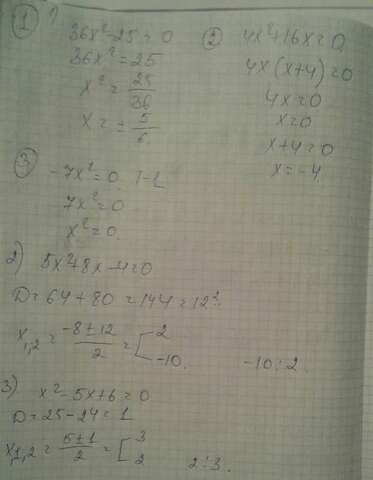 ① 1)
36x²-25=0
36x²=25
x²=25/36
x=±5/6
② 4x²+16x=0
4x(x+4)=0
4x=0
x=0
x+4=0
x=-4
③ -7x²=0
7x²=0
x²=0
2) 5x²+8x-4=0
D=64+80=144=12²
x₁,₂=(-8±12)/2=[2
-10. -10;2.
3) x²-5x+6=0
D=25-24=1
x₁,₂=(5±1)/2=[3
2 2;3.